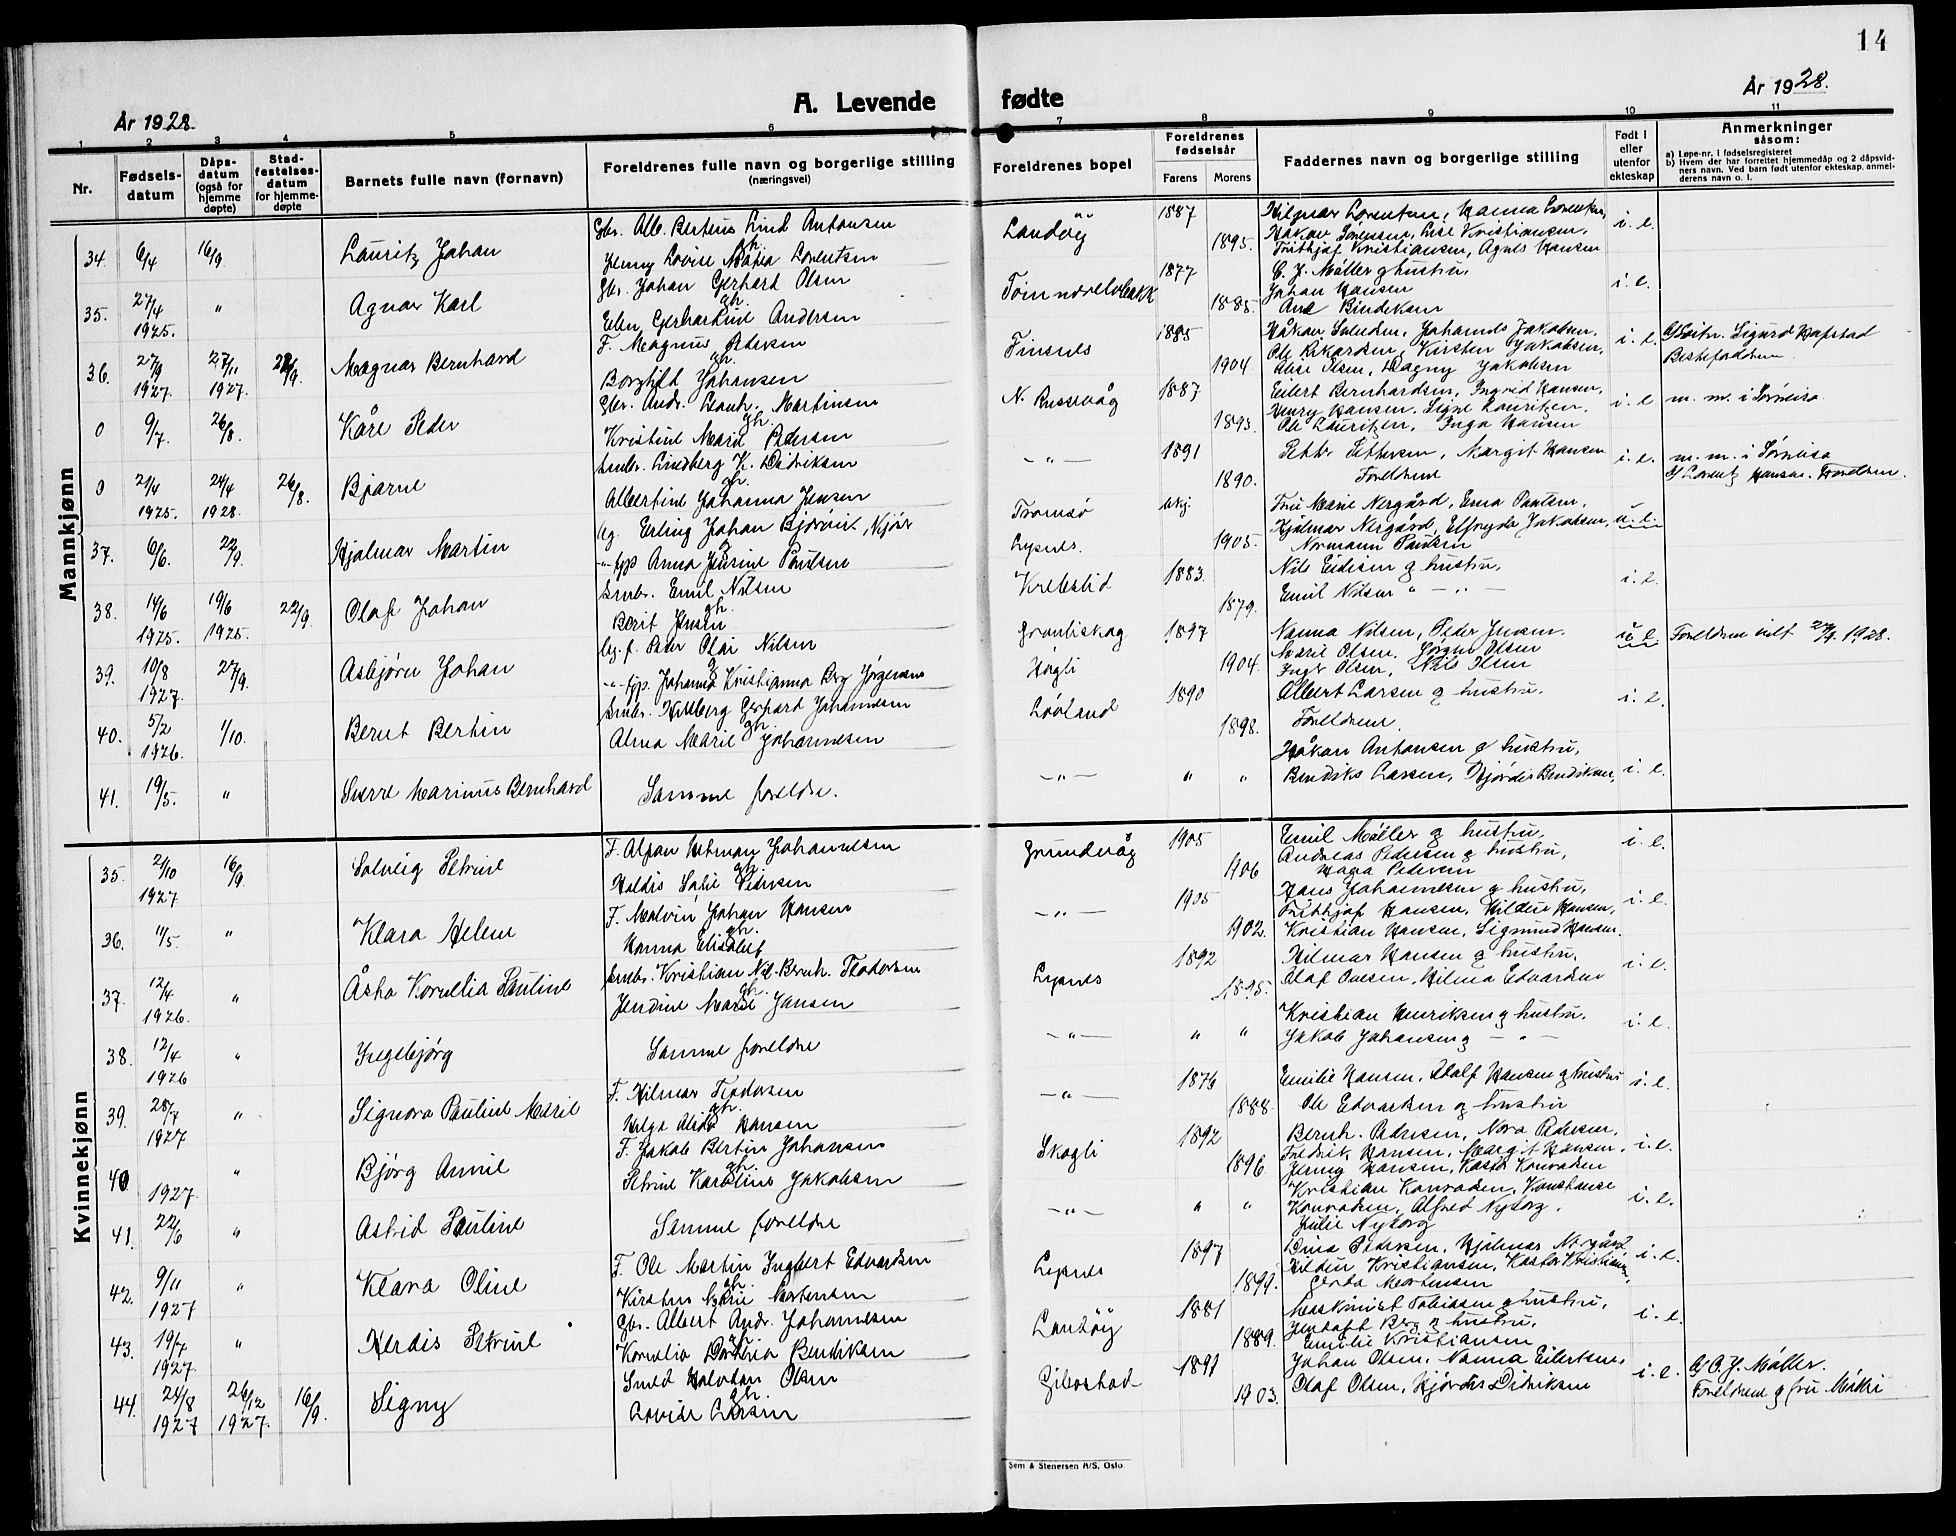 14
År 1928.
A. Levende
fødte
År 1928.
1 2 3 4 5 6
7 8 9 10 11
Nr.
Fødsels-
datum
Dåps-
datum
(også for
hjemme
døpte)
Stad-
festelses-
datum
for hjemme-
døpte
Barnets fulle navn (fornavn)
Foreldrenes fulle navn og borgerlige stilling
(næringsvei)
Foreldrenes bopel
Foreldrenes
fødselsår
Farens Morens
Faddernes navn og borgerlige stilling
Født i
eller
utenfor
ekteskap
Anmerkninger
såsom:
a) Løpe-nr. i fødselsregisteret
b) Hvem der har forrettet hjemmedåp og 2 dåpsvid-
ners navn. Ved barn født utenfor ekteskap, anmel-
derens navn o. l.
Mannkjønn
34. 6/4 16/9 Lauritz Johan
Gbr. Alb. Berteus Lind Antonsen
gh.
Jenny Lovise Maria Lorentsen
Landøy 1887 1895.
Hilmar Lorentsen, Hanna Lorentsen,
Håkon Sørensen, Lise Kristiansen,
Frithjof Kristiansen, Agnes Hansen
i. e.
35. 27/4 1925. " Agnar Karl
Gbr. Johan Gerhard Olsen
gh.
Elen Gerhardine Andersen
1877 1885.
C. J. Møller & hustru,
Johan Hansen
i. e.
36. 27/9 1927. 27/11 1927. Magnar Bernhard
F. Magnus Pedersen
gh.
Borghild Johansen
Finsnes 1885 1904
Håkon Svendsen, Johannes Jakobsen.
Ole Rikardsen, Kirsten Jakobsen,
Alise Olsen, Dagny Jakobsen
i. e.
Sigurd Hafstad
Besteforeldrene
0 9/7. 26/8. Kåre Peder
Gbr. Andr. Leonh. Martinsen
gh.
Kristine Marie Pedersen
N. Russevåg 1887 1893.
Eilert Bernhardsen, Ingrid Hansen,
Henry Hansen, Signe Lauritzen,
Ole Lauritzen, Inga Hansen
i. e. m. m. i Sørreisa
0 21/4 1925. 24/4 1928. 26/8. Bjarne
Småbr. Lindberg K. Didriksen
gh.
Albertine Johanna Jensen
— " — 1891 1890.
Petter Pettersen, Margit Hansen
Foreldrene
i. e. m. m. i Sørreisa
Lorentz Hansen. Foreldrene.
37. 6/6. 22/9. Hjalmar Martin
Ug. Erling Johan Bjørvik, Kjøsv
&
— " — tjp. Anna Jensine Paulsen
Tromsø
Lysnes. ukj. 1905.
Fru Marie Nergård, Erna Paulsen,
Hjalmar Nergård, Elfreyde Jakobsen,
Normann Paulsen
u. e.
38. 14/6 1925. 19/6 1925. 22/9. Olaf Johan
Småbr. Emil Nilsen
gh.
Berit Jensen
1883. 1879.
Nils Eidisen & hustru,
Emil Nilsen " — " —
i. e.
39. 10/8 1927. 27/9. Asbjørn Johan
Ug. f. Peder Olai Nilsen
&
— " — tjp. Johanna Kristianna Berg Jørgensen
Grunliskog
Høgli 1897 1904.
Nanna Nilsen, Peder Jensen.
Marie Olsen, Jørgen Olsen
Inger Olsen, Nils Olsen
u. e. Foreldrene viet 27/9 1928.
40. 5/2 1926. 1/10. Bernt Bertin
Småbr. Hilberg Gerhard Johannesen
gh.
Alma Marie Johannesen
Løvland 1890 1898.
Albert Larsen & hustru.
Foreldrene.
i. e.
41. 19/5. " Sverre Marinus Bernhard
Samme foreldre.
— " — " "
Håkon Antonsen & hustru,
Bendiks Larsen, Hjørdis Bendiksen,
i. e.
Kvinnekjønn
35. 2/10 1927 16/9. Solveig Petrine
F. Alfon Herman Johannesen
gh.
Haldis Sofie Pedersen
Grundvåg 1905 1906
Emil Møller & hustru,
Andreas Pedersen & hustru,
Haga Pedersen
i. e.
36. 11/5. " Klara Helene
F. Malvin Johan Hansen
gh.
Hanna Elisabet
— " — 1905 1902.
Hans Johannesen & hustru,
Frithjof Hansen, Hildur Hansen,
Kristian Hansen, Sigmund Hansen.
i. e.
37. 12/4 1926. " Åsta Kornelia Pauline
Småbr. Kristian Nil. Bernh. Teodorsen
gh.
Jendine Marie Jansen
Lysnes 1892 1895.
Hilmar Hansen & hustru,
Olaf Ovesen, Hilma Edvardsen
i. e.
38. 12/4 1926 " Ingebjørg
Samme foreldre
— " — " "
Kristian Henriksen & hustru.
Jakob Johansen & — " —
i. e.
39. 28/7 1927 " Signora Pauline Marie
F. Hilmar Teodorsen
gh.
Helga Alida Hansen
— " — 1876 1888.
Emilie Hansen, Adolf Hansen & hustru
Ole Edvardsen & hustru
i. e.
40 1927. " Bjørg Annie
F. Jakob Bertin Johansen
gh.
Petrine Karoline Jakobsen
Skogli 1892 1896.
Bernh. Pedersen, Nora Pedersen,
Fredrik Hansen, Margit Hansen,
Jenny Hansen, Kasta Konradsen
i. e.
41. 22/6 " Astrid Pauline
Samme foreldre
— " — " "
Kristian Konradsen, Konstanse
Konradsen, Alfred Nyborg,
Julie Nyborg
i. e.
42. 9/11 1927 " Klara Oline
F. Ole Martin Ingbert Edvardsen
gh.
Kirsten Marie Mortensen
Lysnes 1897 1899.
Dina Pedersen, Hjalmar Nergård
Hildur Kristiansen, Kastor Kristiansen,
Gerda Mortensen
i. e.
43. 19/7 1927. " Herdis Petrine
Gbr. Albert Andr. Johannesen
gh.
Kornelia Dorthea Bendiksen
Landøy 1881 1889.
Maskinist Tobiassen & hustru,
Jentoft Berg & hustru,
Emilie Kristiansen
i. e.
44. 24/8 1927 26/12 1927. 16/9. Signy
Smed Halvdan Olsen
gh.
Lovise Larsen
Gibostad 1891 1903.
Johan Olsen, Nanna Eilertsen,
Olaf Olsen, Hjørdis Didriksen
i. e. C. J. Møller.
Foreldrene & fru Møller
Sem & Stenersen A/S, Oslo.